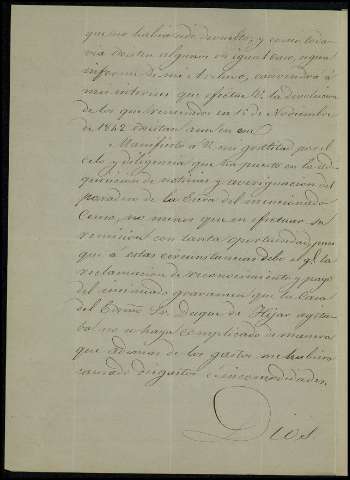 que no habiendo devuelto, y como toda-
via existen algunos en igual caso, segun
informe de mi Archivo, convendrá á
mis intereses que efectue V. la devolucion
de los que reservados en 15 de Noviembre
de 1842 existan aun en su
Manifiesto á V. mi gratitud por el
celo y diligencia que ha puesto en la ad-
quisicion de noticias y averiguacion del
paradero de la del mencionado
Censo, no menos que en efectuar su
remision con tanta oportunidad, pues
que á estas circunstancias debo el q.e la
reclamacion de reconocimiento y pago
del insinuado gravamen que la Casa
del Exmo. Sr. Duque de Hijar agita-
ba no se haya complicado de manera
que ademas de los gastos me hubiera
causado disgustos é incomodidades.
Dios